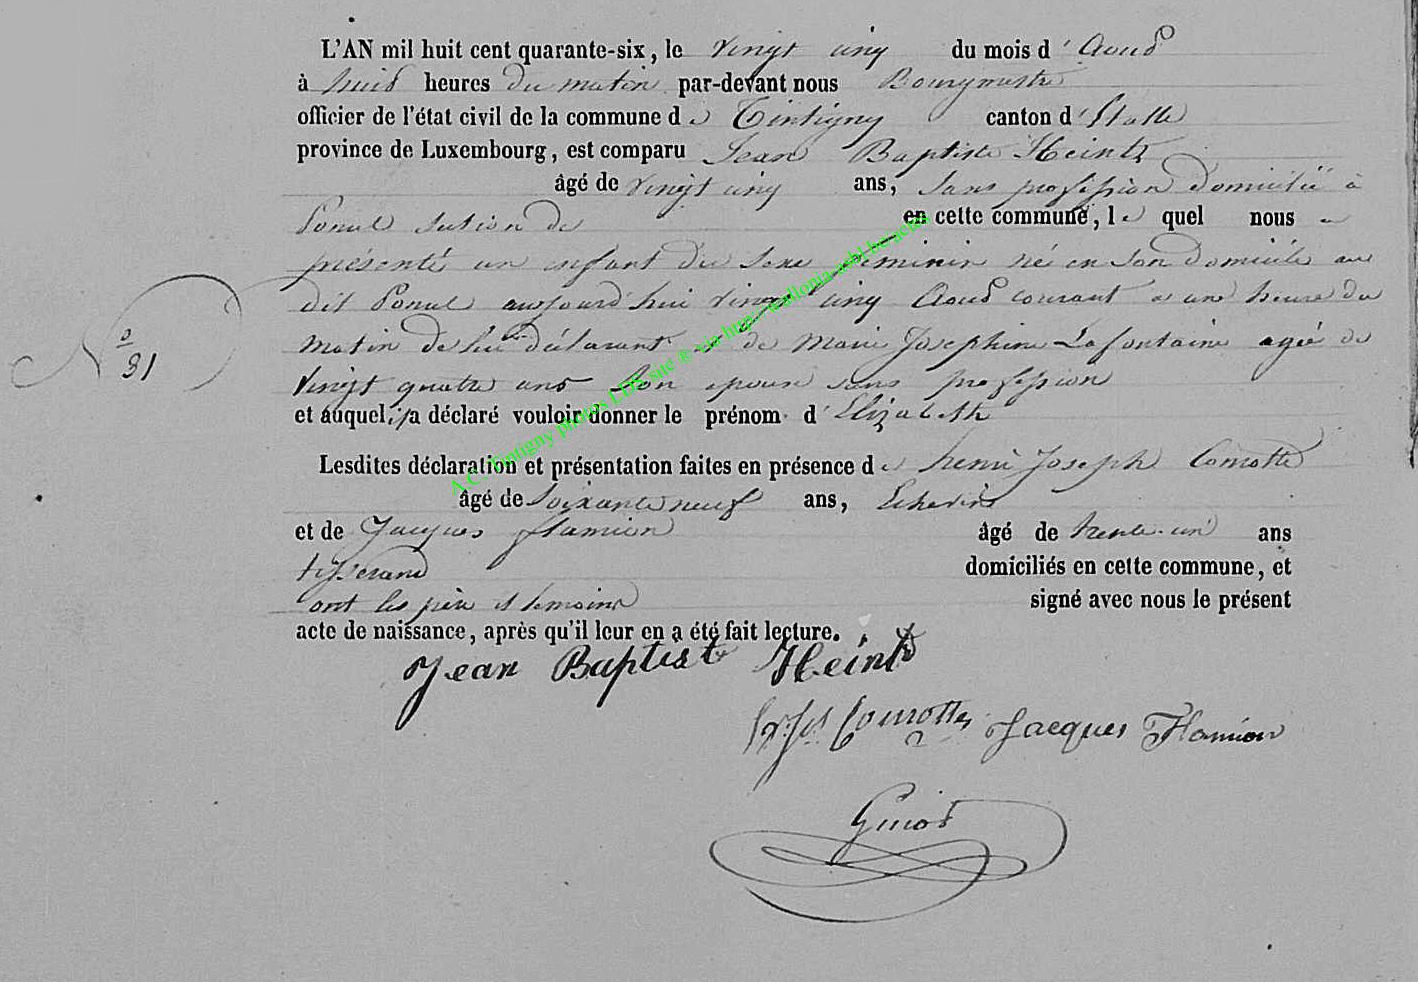 L'AN mil huit cent quarante-six, le vingt cinq du mois d' Aout
à huit heures du matin par-devant nous Bourgmestre
officier de l'état civil de la commune de Tintigny canton d' Etalle
province de Luxembourg, est comparu Jean Baptiste Heintz
âgé de vingt cinq ans, sans profession domicilié à
Ponul section de en cette commune, le quel nous a
présenté un enfant du sexe feminin né en son domicile au
dit Ponul aujourd'hui vingt cinq Aout courant à une heure du
matin de lui déclarant et de Marie Josephine Lafontaine agée de
vingt quatre ans son epouse sans profession
et auquel il a déclaré vouloir donner le prénom d' Elizabeth
N° 31
Lesdites déclaration et présentation faites en présence de henri Joseph Comotte
âgé de soixante neuf ans, Echevin
et de Jacques flamion âgé de trente-un ans
tisserand domiciliés en cette commune, et
ont les père et temoins signé avec nous le présent
acte de naissance, après qu'il leur en a été fait lecture.
Jean Baptist Heintz
Comotte Jacques Flamion
Guiot
A.C. Tintigny photos LDS sue ® via http://wallonia-asbl.be/actes